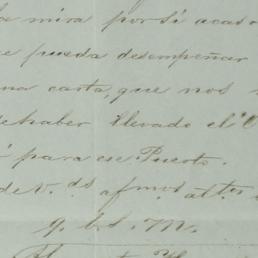 la mira por si acaso
se pueda desempeñar
una carta, que nos
dehaber llevado el
para ese Puerto.
de V.ds af.mos at.tes
q. b. s. M.